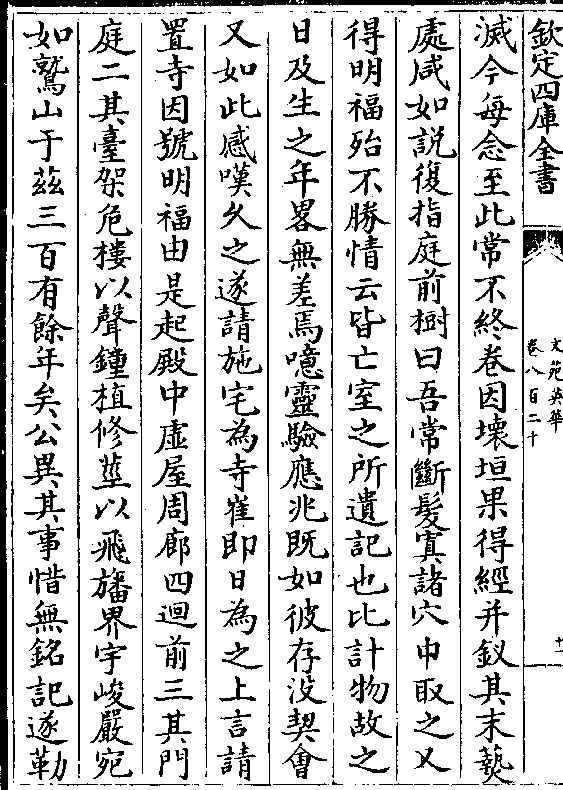 欽定四庫全書
文苑英華
卷八百二十
十
滅今每念至此常不終卷因壞垣果得經并釵其末爇
處咸如説復指庭前樹曰吾常斷髮寘諸穴中取之又
得明福殆不勝情云皆亡室之所遺記也比計物故之
日及生之年畧無差焉噫靈驗應兆既如彼存没契會
又如此感嘆久之遂請施宅為寺崔即日為之上言請
置寺因號明福由是起殿中虚屋周廊四迴前三其門
庭二其臺架危樓以聲鐘植修莖以飛旛界宇峻嚴宛
如鷲山于兹三百有餘年矣公異其事惜無銘記遂勒